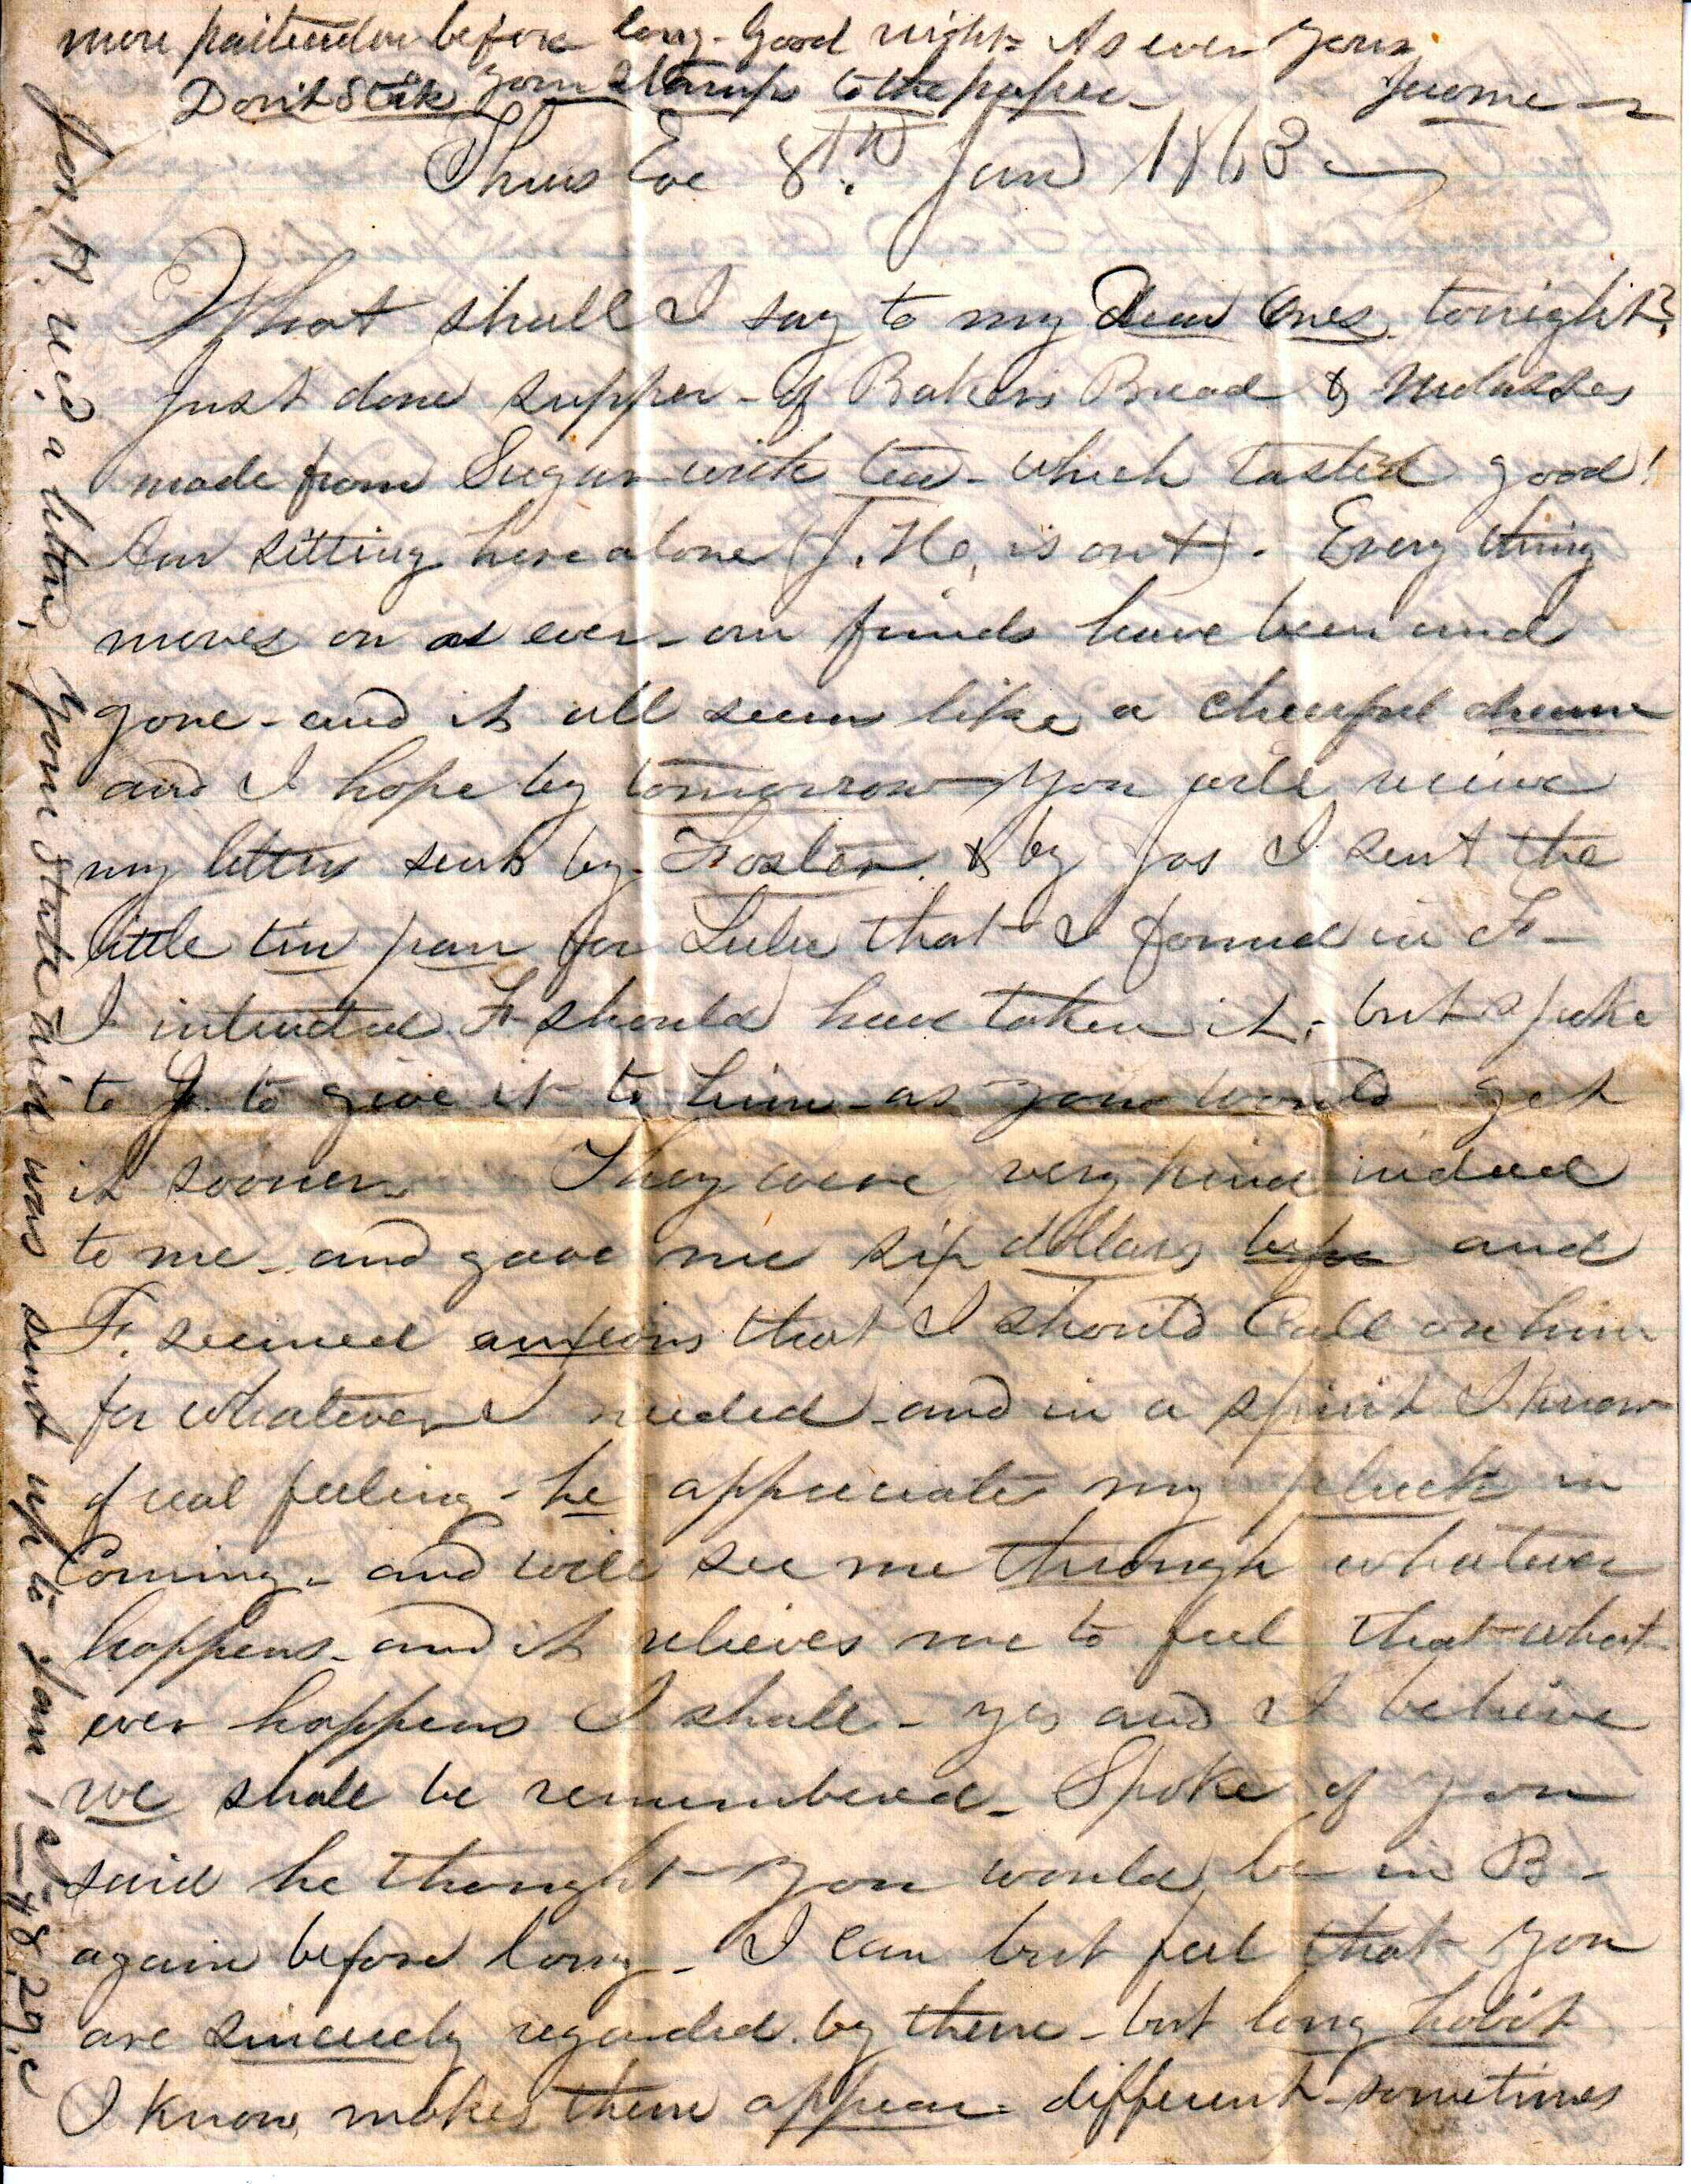 more particular before long - Good night - As ever Yours,
Don't Stick your stamps to the paper - Jerome -
Thurs Eve 8th. Jan 1863 -
What shall I say to my Dear Ones tonight?
Just done supper - of Bakers Bread & Molasses
made from Sugar with tea - which tasted good!
Am sitting here alone (J. H. is out). Every thing
moves on as ever - our friends have been and
gone - and it all seem like a cheerful dream
and I hope by tomorrow you will receive
my letter sent by Foster. & by Jos I sent the
little tin pan for Lulu that I found in F -
I intended F should have taken it, - but spoke
to J. to give it to him - as you would get
it sooner They were very kind indeed
to me - and gave me six dollars and
F. seemed anxious that I should Call on him
for whatever I needed - and in a spirit I know
of real feeling - he appreciates my pluck in
Coming - and will see me through whatever
happens - and it relieves me to feel that what
ever happens I shall - yes and I believe
we shall be remembered - Spoke of you
said he thought you would be in B -
again before long - I can but feel that you
are sincerely regarded by them - but long habit
I know makes them appear different sometimes
for H. a letter, Your Statement was sent up to Jan 1st - 48,29,c